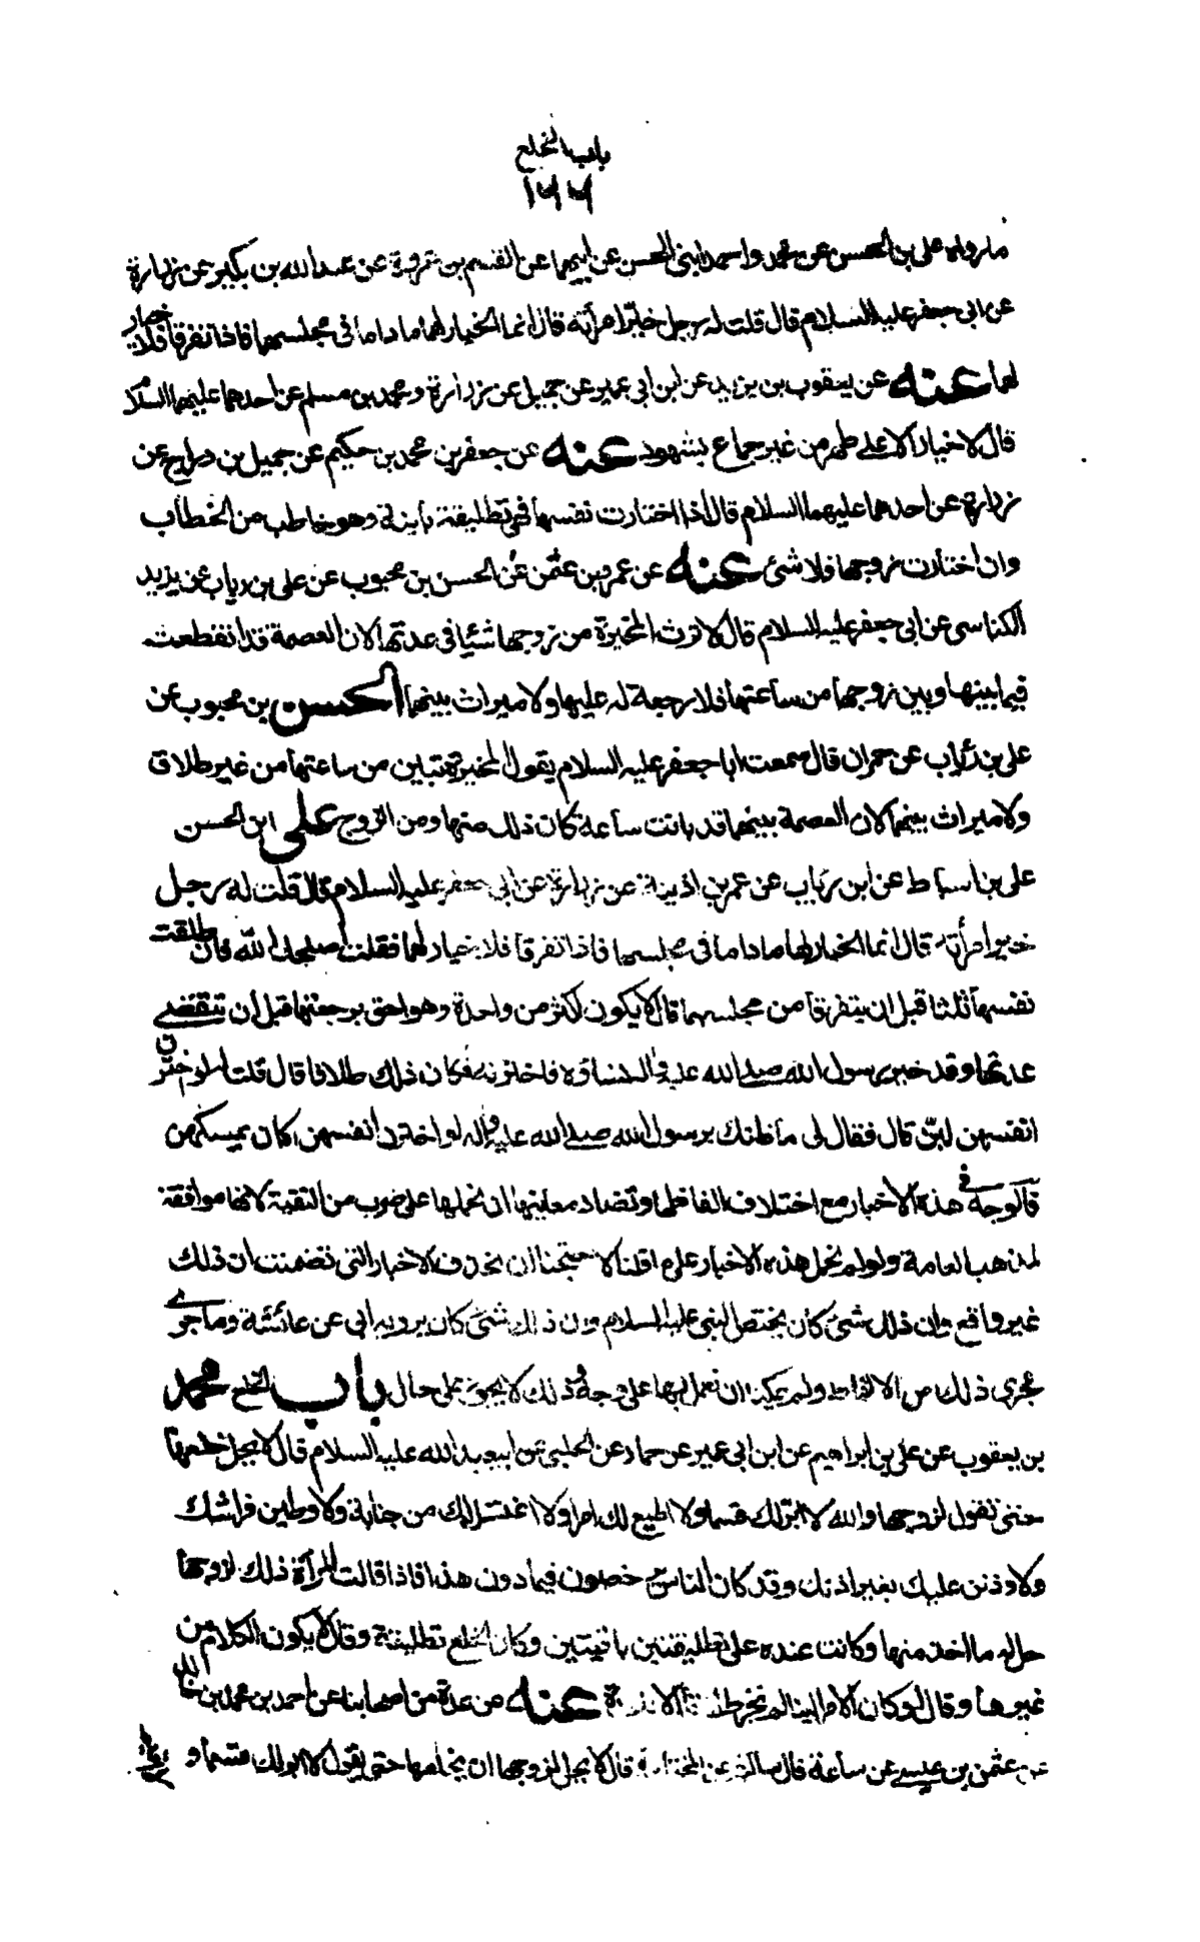 باب الخلع
١٦٦
ما رواه علي بن الحسن عن محمد واحمد ابني الحسن عن ابيهما عن القسم بن عروة عن عبد الله بن بكير عن زرارة
عن ابي جعفر عليه السلام قال قلت له رجل خيّر امرأته قال انما الخيار لهما ما داما في مجلسهما فاذا تفرقا فلا خيار
لهما عنه عن يعقوب بن يزيد عن ابن ابي عمير عن جميل عن زرارة ومحمد بن مسلم عن احدهما عليهما السلام
قال لا خيار الا على طهر من غير جماع بشهود عنه عن جعفر بن محمد بن حكيم عن جميل بن دراج عن
زرارة عن احدهما عليهما السلام قال اذا اختارت نفسها فهي تطليقة باينة وهو خاطب من الخطاب
وان اختارت زوجها فلا شئ عنه عن عمرو بن عثمن عن الحسن بن محبوب عن علي بن رياب عن يزيد
الكناسي عن ابي جعفر عليه السلام قال لا ترث المخيرة من زوجها شيئا في عدتها لان العصمة قد انقطعت
فيما بينها وبين زوجها من ساعتها فلا رجعة له عليها ولا ميراث بينهما الحسن بن محبوب عن
علي بن رئاب عن حمران قال سمعت ابا جعفر عليه السلام يقول المخيرة تبين من ساعتها من غير طلاق
ولا ميراث بينهما لان العصمة بينهما قد بانت ساعة كان ذلك منها ومن الزوج علي ابن الحسن
علي بن اسباط عن ابن رياب عن عمر بن اذينة عن زرارة عن ابي جعفر عليه السلام قال قلت له رجل
خير امرأته قال انما الخيار لهما ما داما في مجلسهما فاذا تفرقا فلا خيار لهما فقلت اصلحك الله فان طلقت
نفسها ثلثا قبل ان يتفرقا من مجلسهما قال لا يكون اكثر من واحدة وهو احق برجعتها قبل ان تنقضي
عدتها وقد خير رسول الله صلى الله عليه واله نساؤه فاخترنه فكان ذلك طلاقا قال قلت له لو اخترن
انفسهن لبنّ قال فقال لي ما ظنك برسول الله صلى الله عليه واله لو اخترن انفسهن اكان يمسكهن
فالوجه في هذه الاخبار مع اختلاف الفاظها وتضاد معانيها ان نحملها على ضرب من التقية لانها موافقة
لمذهب العامة ولو لم نحمل هذه الاخبار على ما قلنا لاحتجنا ان نحذف الاخبار التي تضمنت ان ذلك
غير واقع وان ذلك شئ كان يختص النبي عليه السلام وان ذلك شئ كان يرويه ابي عن عائشة وما جرى
مجرى ذلك من الالفاظ ولم يمكن ان نعمل بها على وجه وذلك لا يجوز على حال باب الخلع محمد
بن يعقوب عن علي بن ابراهيم عن ابن ابي عمير عن حماد عن الحلبي عن ابي عبد الله عليه السلام قال لا يحل خلعها
حتى تقول لزوجها والله لا ابر لك قسما ولا اطيع لك امرا ولا اغتسل لك من جنابة ولاوطين فراشك
ولاوذنن عليك بغير اذنك وقد كان الناس يرخصون فيما دون هذا فاذا قالت المرأة ذلك لزوجها
حل له ما اخذ منها وكانت عنده على تطليقتين باقيتين وكان الخلع تطليقة وقال لا يكون الكلام من
غيرها وقال لو كان الامر الينا لم نجز طلاقا الا للعدة عنه عن عدة من اصحابنا عن احمد بن محمد بن خالد
عن عثمن بن عيسى عن سماعة قال سالته عن المختلعة قال لا يحل لزوجها ان يخلعها حتى تقول لا ابر لك قسما و